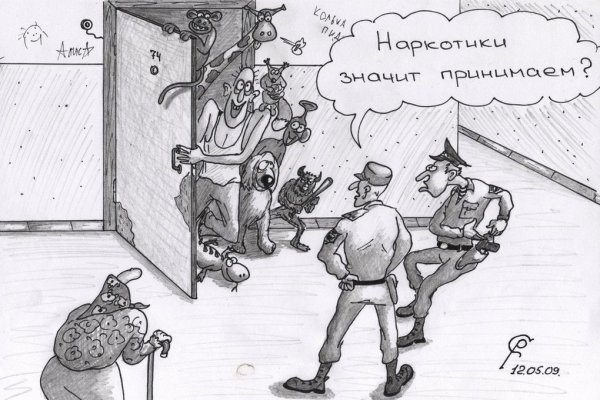 Алиса
74
КОЛЬКА
Наркотики
значит принимаем?
12.05.09.